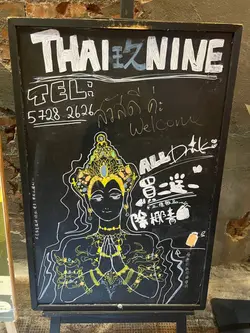 THAI玖NINE
TEL:
5728 2626
สวัสดีค่ะ
Welcome
ALL Drink:
買二送一
除椰青